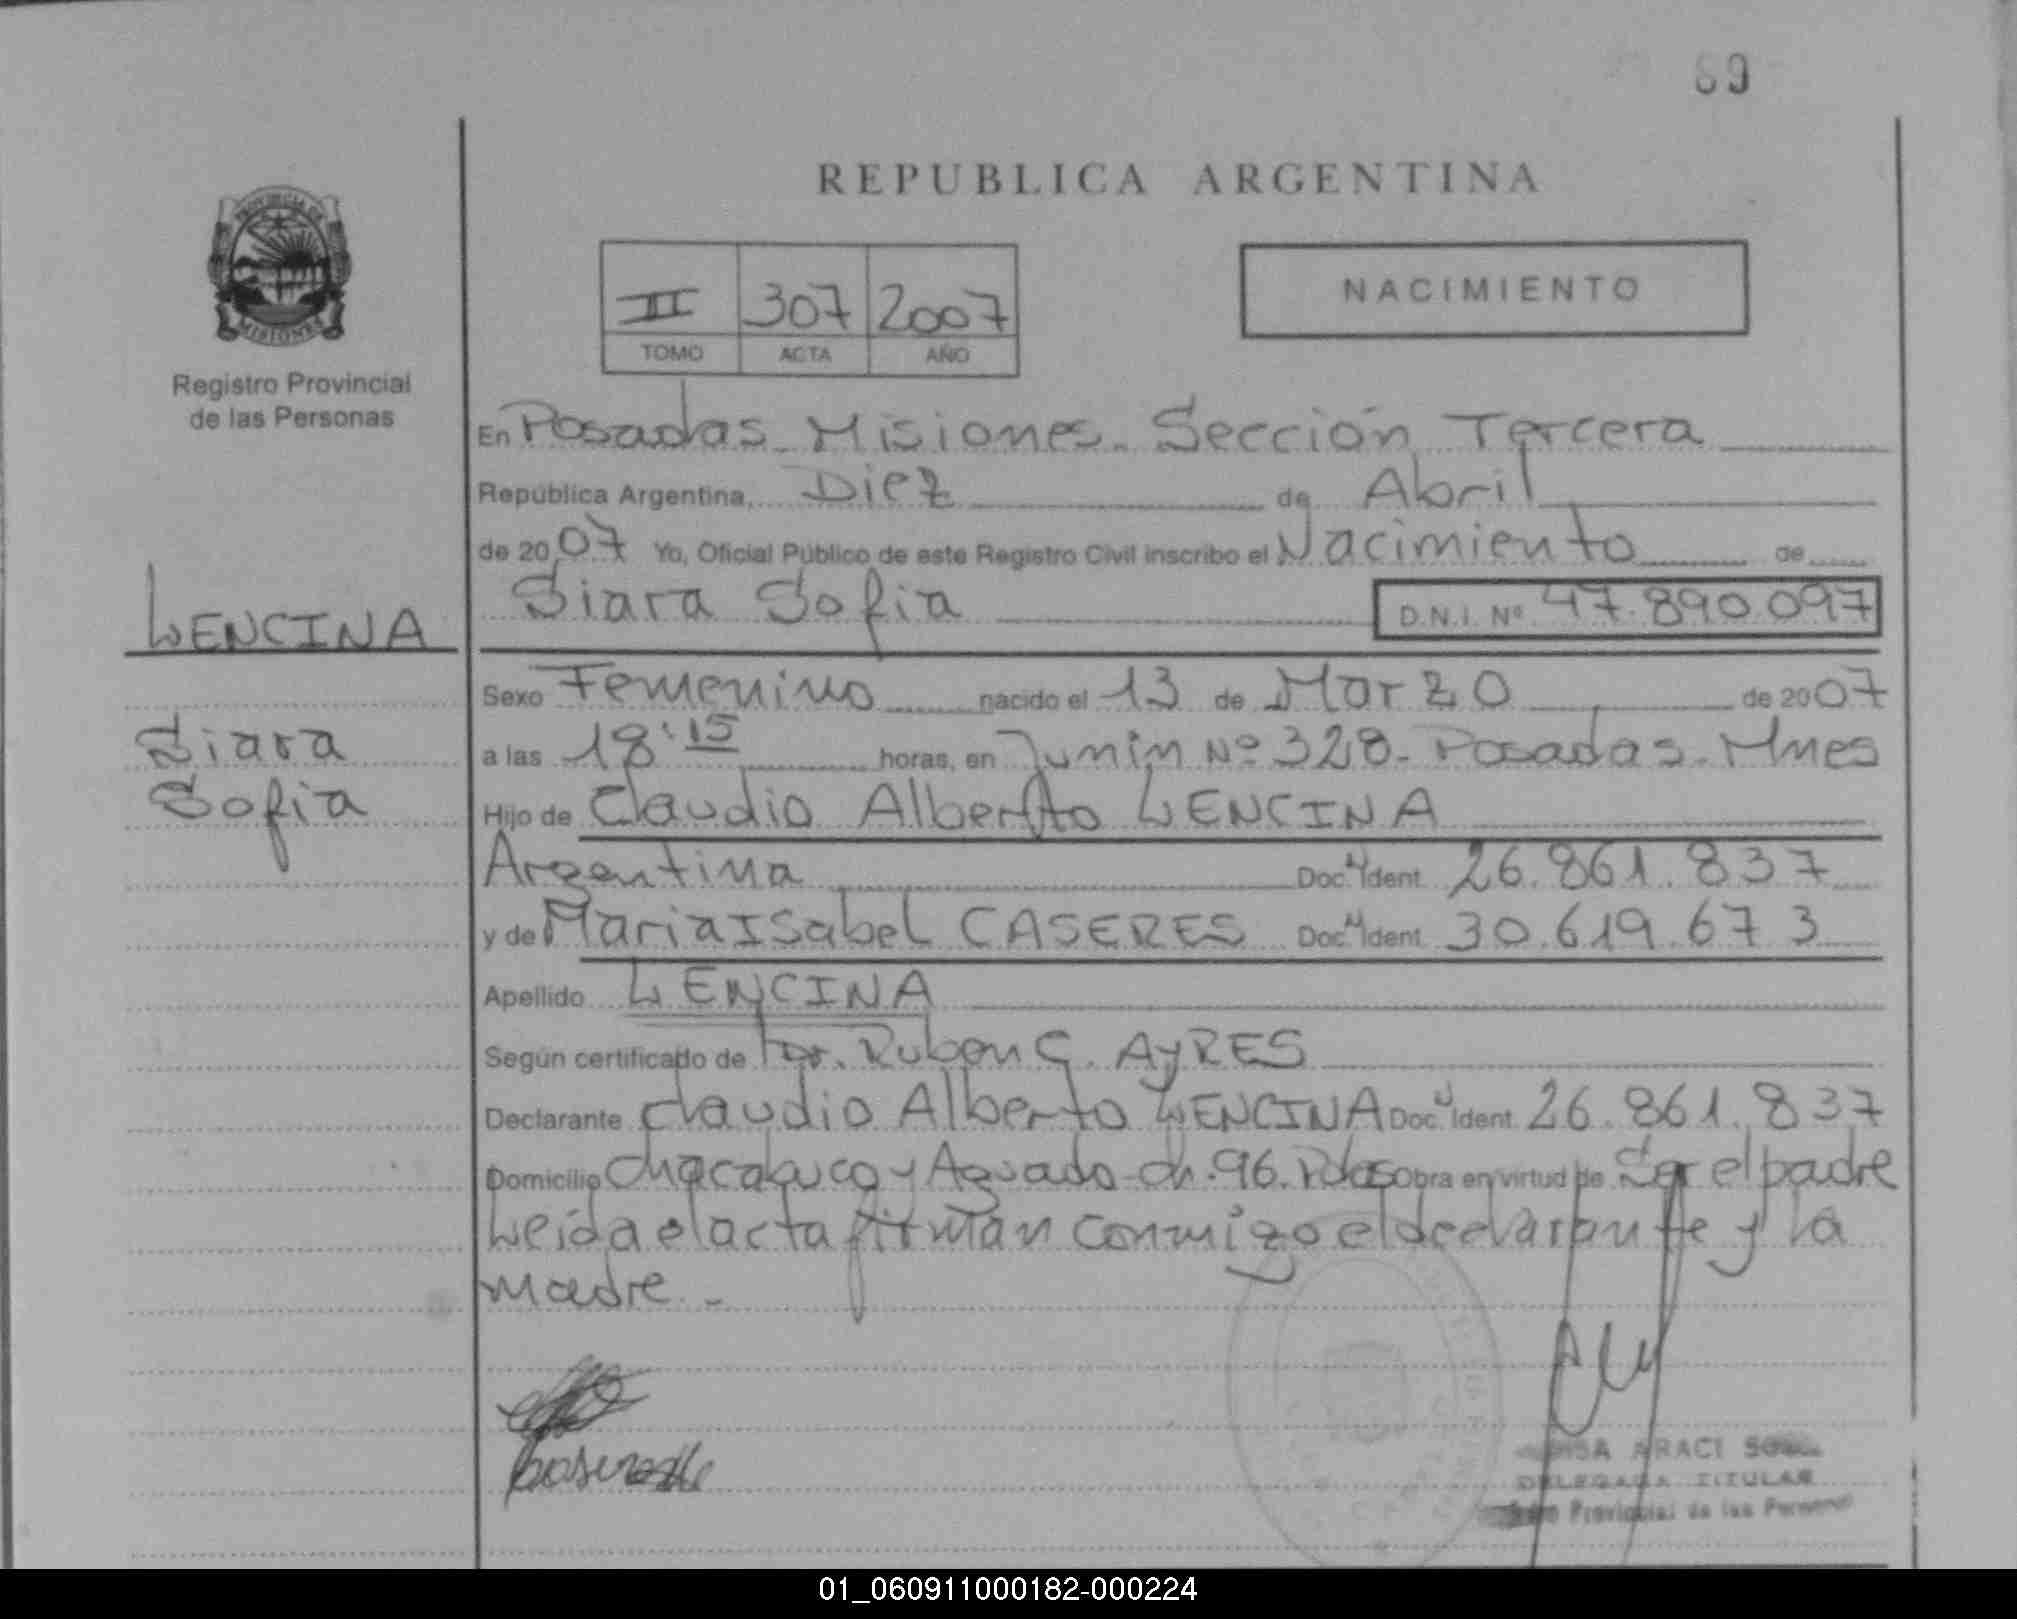 69
REPUBLICA ARGENTINA
PROVINCIA DE
MISIONES
Registro Provincial
de las Personas
II 307 2007
TOMO ACTA AÑO
NACIMIENTO
En Posadas Misiones. Sección Tercera
República Argentina, Diez de Abril
de 2007 Yo, Oficial Público de este Registro Civil inscribo el Nacimiento de
Siara Sofia D.N.I. Nº 47.890.097
LENCINA
Siara
Sofia
Sexo Femenino nacido el 13 de Marzo de 2007
a las 18:15 horas, en Junin Nº 328- Posadas. Mnes
Hijo de Claudio Alberto LENCINA
Argentina Doc. Ident. 26.861.837
y de Maria Isabel CASERES Doc. Ident. 30.619.673
Apellido LENCINA
Según certificado de Dr. Ruben C. AyRES
Declarante Claudio Alberto LENCINA Doc. Ident. 26.861.837
Domicilio Chacabuco y Aguado-ch.96. Pdas Obra en virtud de Ser el padre
Leída el acta firman conmigo el declarante y la
madre.-
ARACI
DELEGADA TITULAR
Provincial de las Personas
01_060911000182-000224